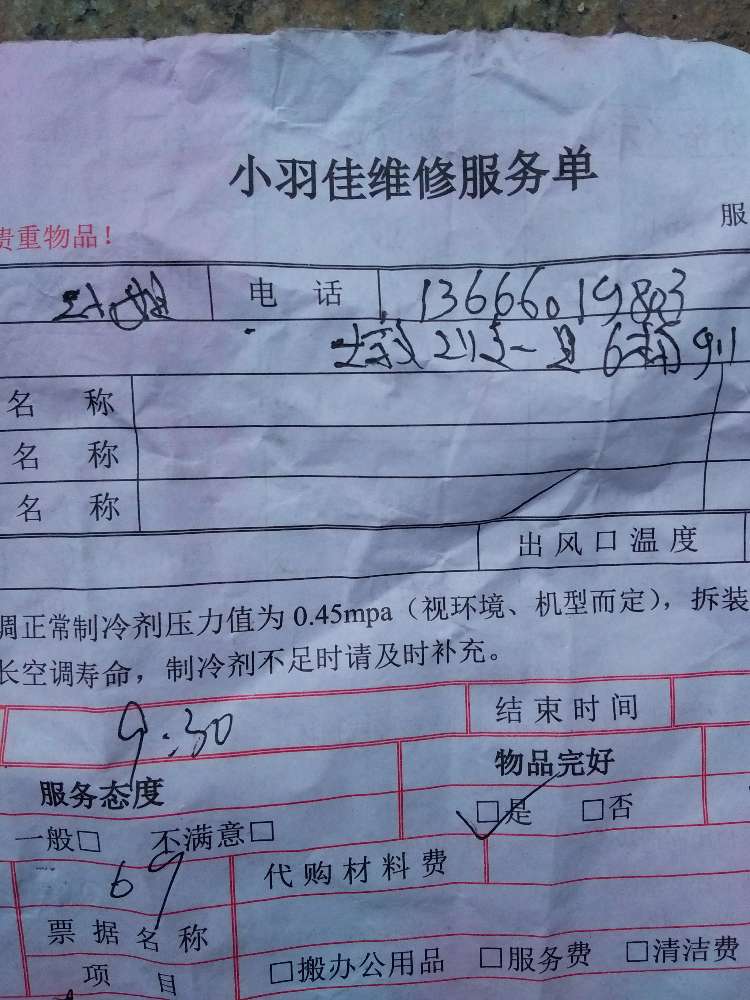 小羽佳维修服务单
服
贵重物品!
电 话 13666019803
名 称
名 称
名 称
出风口温度
调正常制冷剂压力值为 0.45mpa(视环境、机型而定),拆装
长空调寿命,制冷剂不足时请及时补充。
9:30 结束时间
服务态度 物品完好
一般□ 不满意□ □是 □否
69 代购材料费
票据名称
项 目 □搬办公用品 □服务费 □清洁费